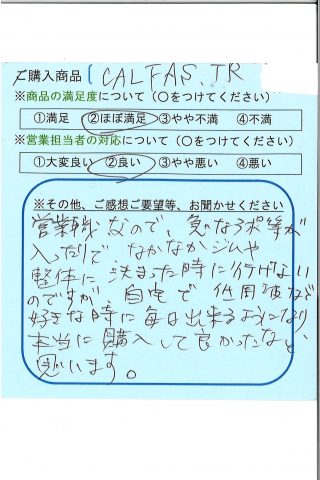 ご購入商品 CALFAS.TR
※商品の満足度について(○をつけてください)
①満足 ②ほぼ満足 ③やや不満 ④不満
※営業担当者の対応について(○をつけてください)
①大変良い ②良い ③やや悪い ④悪い
※その他、ご感想ご要望等、お聞かせください
営業職なので、急なアポ等が
入ったりで なかなかジムや
整体に 決まった時に行けない
のですが 自宅で 低周波など
好きな時に毎日出来るようになり
本当に購入して良かったなと、
思います。